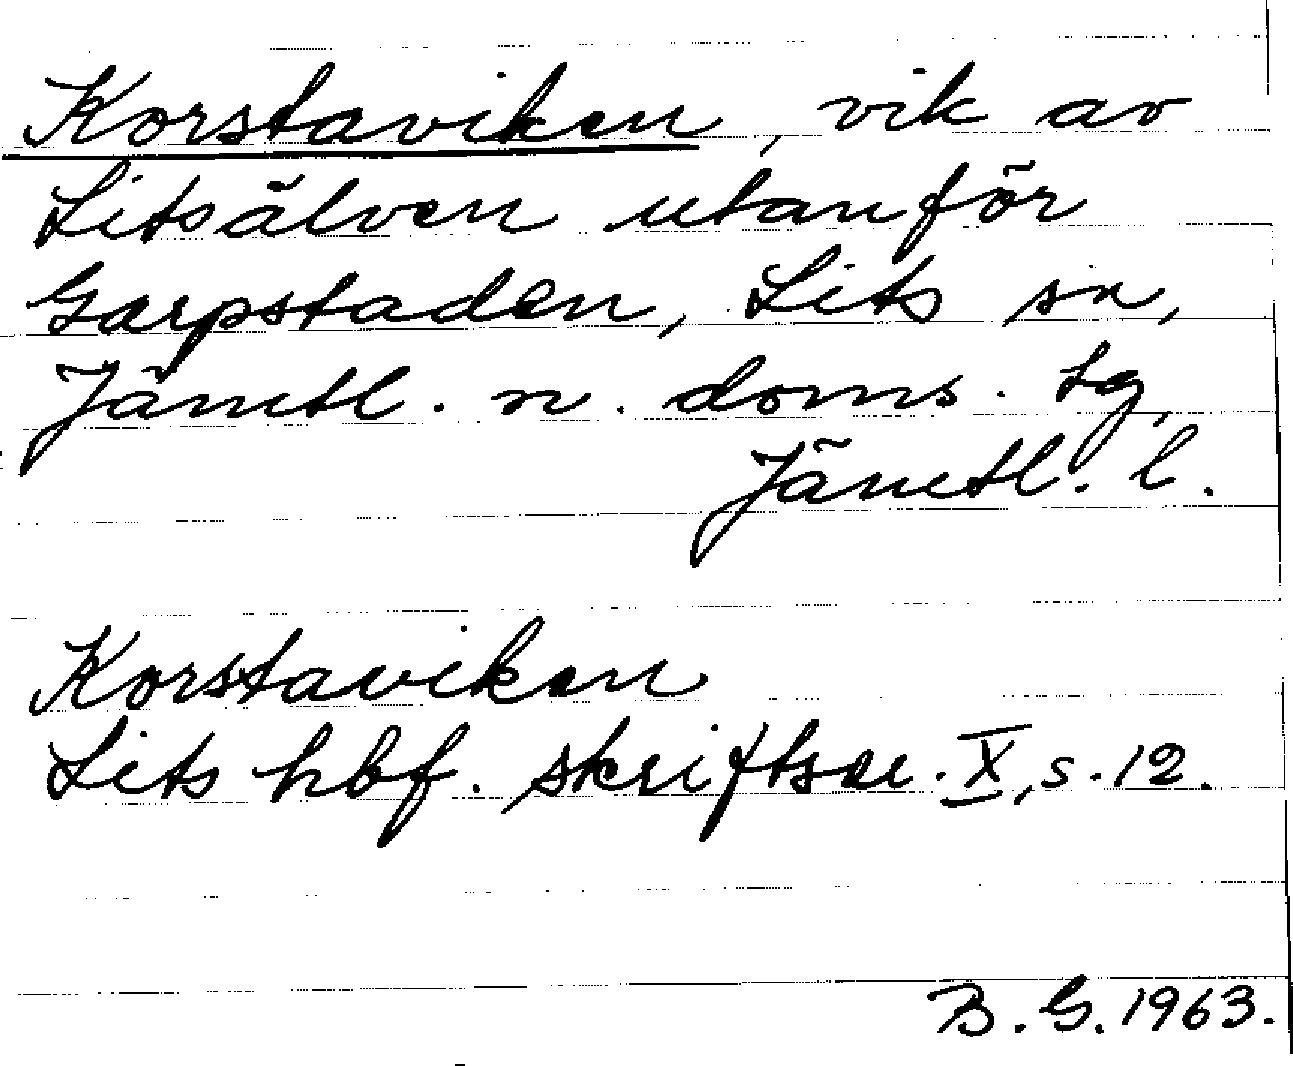 Korstaviken, vik av
Litsälven utanför
Garpstaden, Lits sn,
Jämtl. n. doms. tg,
Jämtl. l.
Korstaviken
Lits hbf. skriftser. X, s. 12.
B. G. 1963.